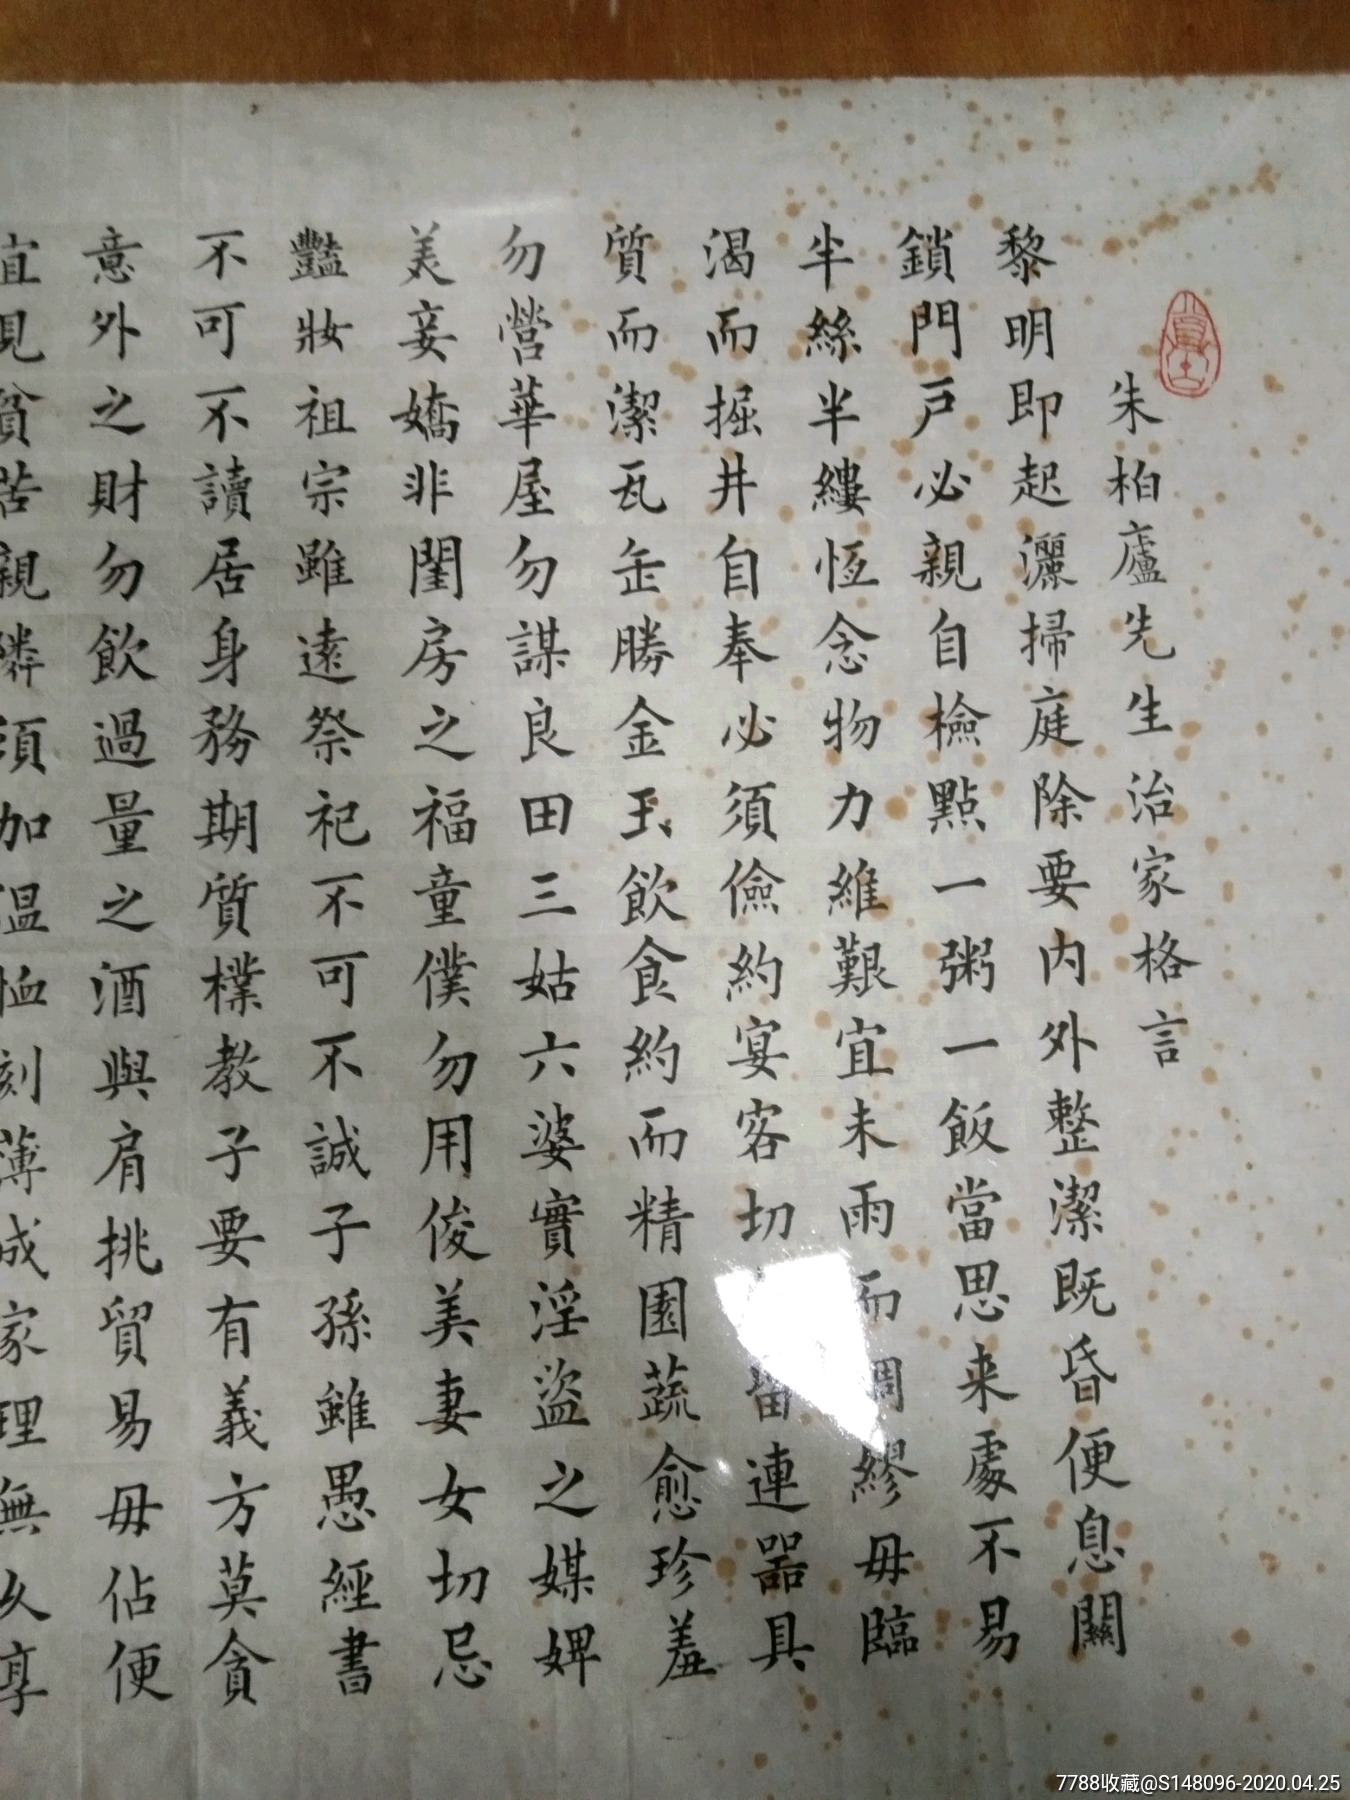 朱柏廬先生治家格言
黎明即起灑掃庭除要內外整潔既昏便息關
鎖門戶必親自檢點一粥一飯當思来處不易
半絲半縷恆念物力維艱宜未雨而綢繆毋臨
渴而掘井自奉必須儉約宴客切留連器具
質而潔瓦缶勝金玉飲食約而精園蔬愈珍羞
勿營華屋勿謀良田三姑六婆實淫盜之媒婢
美妾嬌非閨房之福童僕勿用俊美妻女切忌
豔妝祖宗雖遠祭祀不可不誠子孫雖愚經書
不可不讀居身務期質樸教子要有義方莫貪
意外之財勿飲過量之酒與肩挑貿易毋佔便
宜見貧苦親鄰須加温恤刻薄成家理無久享
7788收藏@S148096-2020.04.25